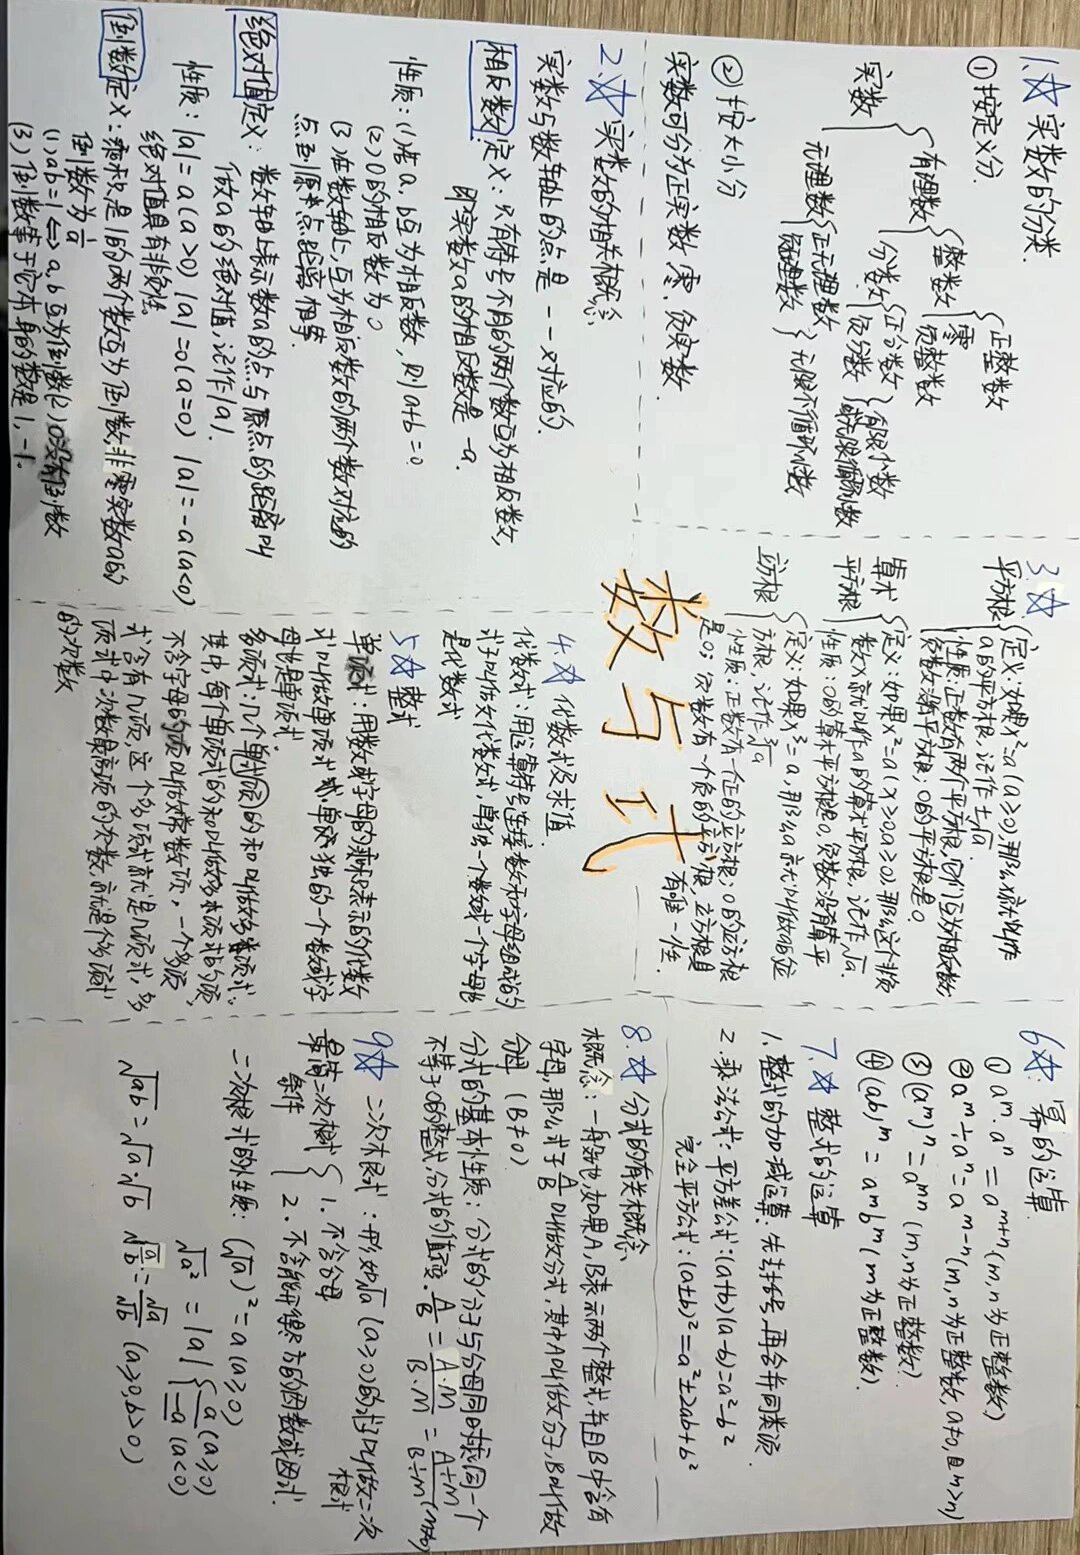 1.☆ 实数的分类
① 按定义分.
实数 { 有理数 { 整数 { 正整数
零
负整数
分数 { 正分数
负分数 } 有限小数或无限循环小数
无理数 { 正无理数
负无理数 } 无限不循环小数
② 按大小分
实数可分为正实数,零,负实数.
2.☆ 实数的相关概念
实数与数轴上的点是一一对应的.
相反数 定义:只有符号不同的两个数互为相反数,
即实数a的相反数是-a.
性质:(1)若a,b互为相反数,则a+b=0
(2)0的相反数为0
(3)在数轴上,互为相反数的两个数对应的
点到原点距离相等.
绝对值 定义:数轴上表示数a的点与原点的距离叫
做a的绝对值,记作|a|.
性质:|a|=a(a>0) |a|=0(a=0) |a|=-a(a<0)
绝对值具有非负性
倒数 定义:乘积是1的两个数互为倒数,非零实数a的
倒数为1/a
(1)ab=1⇔a,b互为倒数(2)0没有倒数
(3)倒数等于它本身的数是1,-1.
3.☆
平方根 { 定义:如果x²=a(a≥0),那么x就叫作
a的平方根,记作±√a
性质:正数有两个平方根,它们互为相反数;
负数没平方根,0的平方根是0.
算术
平方根 { 定义:如果x²=a(x≥0,a≥0),那么这个非负
数x就叫作a的算术平方根,记作√a
性质:0的算术平方根0,负数没有算术平
立方根 { 定义:如果x³=a,那么x就叫做a的立
方根,记作∛a
性质:正数有一个正的立方根;0的立方根
是0;负数有一个负的立方根,立方根具
有唯一性.
数与式
4.☆ 代数式及求值
代数式:用运算符号连接数和字母组成的
式子叫做代数式,单独一个数或一个字母也
是代数式
5☆ 整式
单项式:用数或字母的乘积表示的代数
式叫做单项式 或单独的一个数或字
母也是单项式.
多项式:几个单项式的和叫做多项式.
其中,每个单项式的和叫做多项式的项,
不含字母的项叫做常数项,一个多项
式含有几项,这个多项式就是几项式,多
项式中次数最高项的次数,就是多项式
的次数
6☆. 幂的运算
① aᵐ·aⁿ=aᵐ⁺ⁿ(m,n为正整数)
② aᵐ÷aⁿ=aᵐ⁻ⁿ(m,n为正整数,a≠0,且m>n)
③(aᵐ)ⁿ=aᵐⁿ(m,n为正整数)
④(ab)ᵐ=aᵐbᵐ(m为正整数).
7.☆ 整式的运算
1.整式的加减运算:先去括号,再合并同类项.
2.乘法公式:平方差公式:(a+b)(a-b)=a²-b²
完全平方公式:(a±b)²=a²±2ab+b²
8.☆ 分式的有关概念
概念:一般地,如果A,B表示两个整式,并且B中含有
字母,那么式子A/B叫做分式.其中A叫做分子,B叫做
分母(B≠0)
分式的基本性质:分式的分子与分母同时乘同一个
不等于0的整式,分式的值不变.A/B=A·M/B·M=A÷M/B÷M(M≠0)
9☆ 二次根式:形如√a(a≥0)的式叫做二次
根式
最简二次根式
条件 { 1.不含分母
2.不含能开得尽方的因数或因式.
二次根式的性质:(√a)²=a(a≥0)
√a²=|a| { a(a≥0)
-a(a<0)
√ab=√a·√b √a/b=√a/√b(a≥0,b>0)